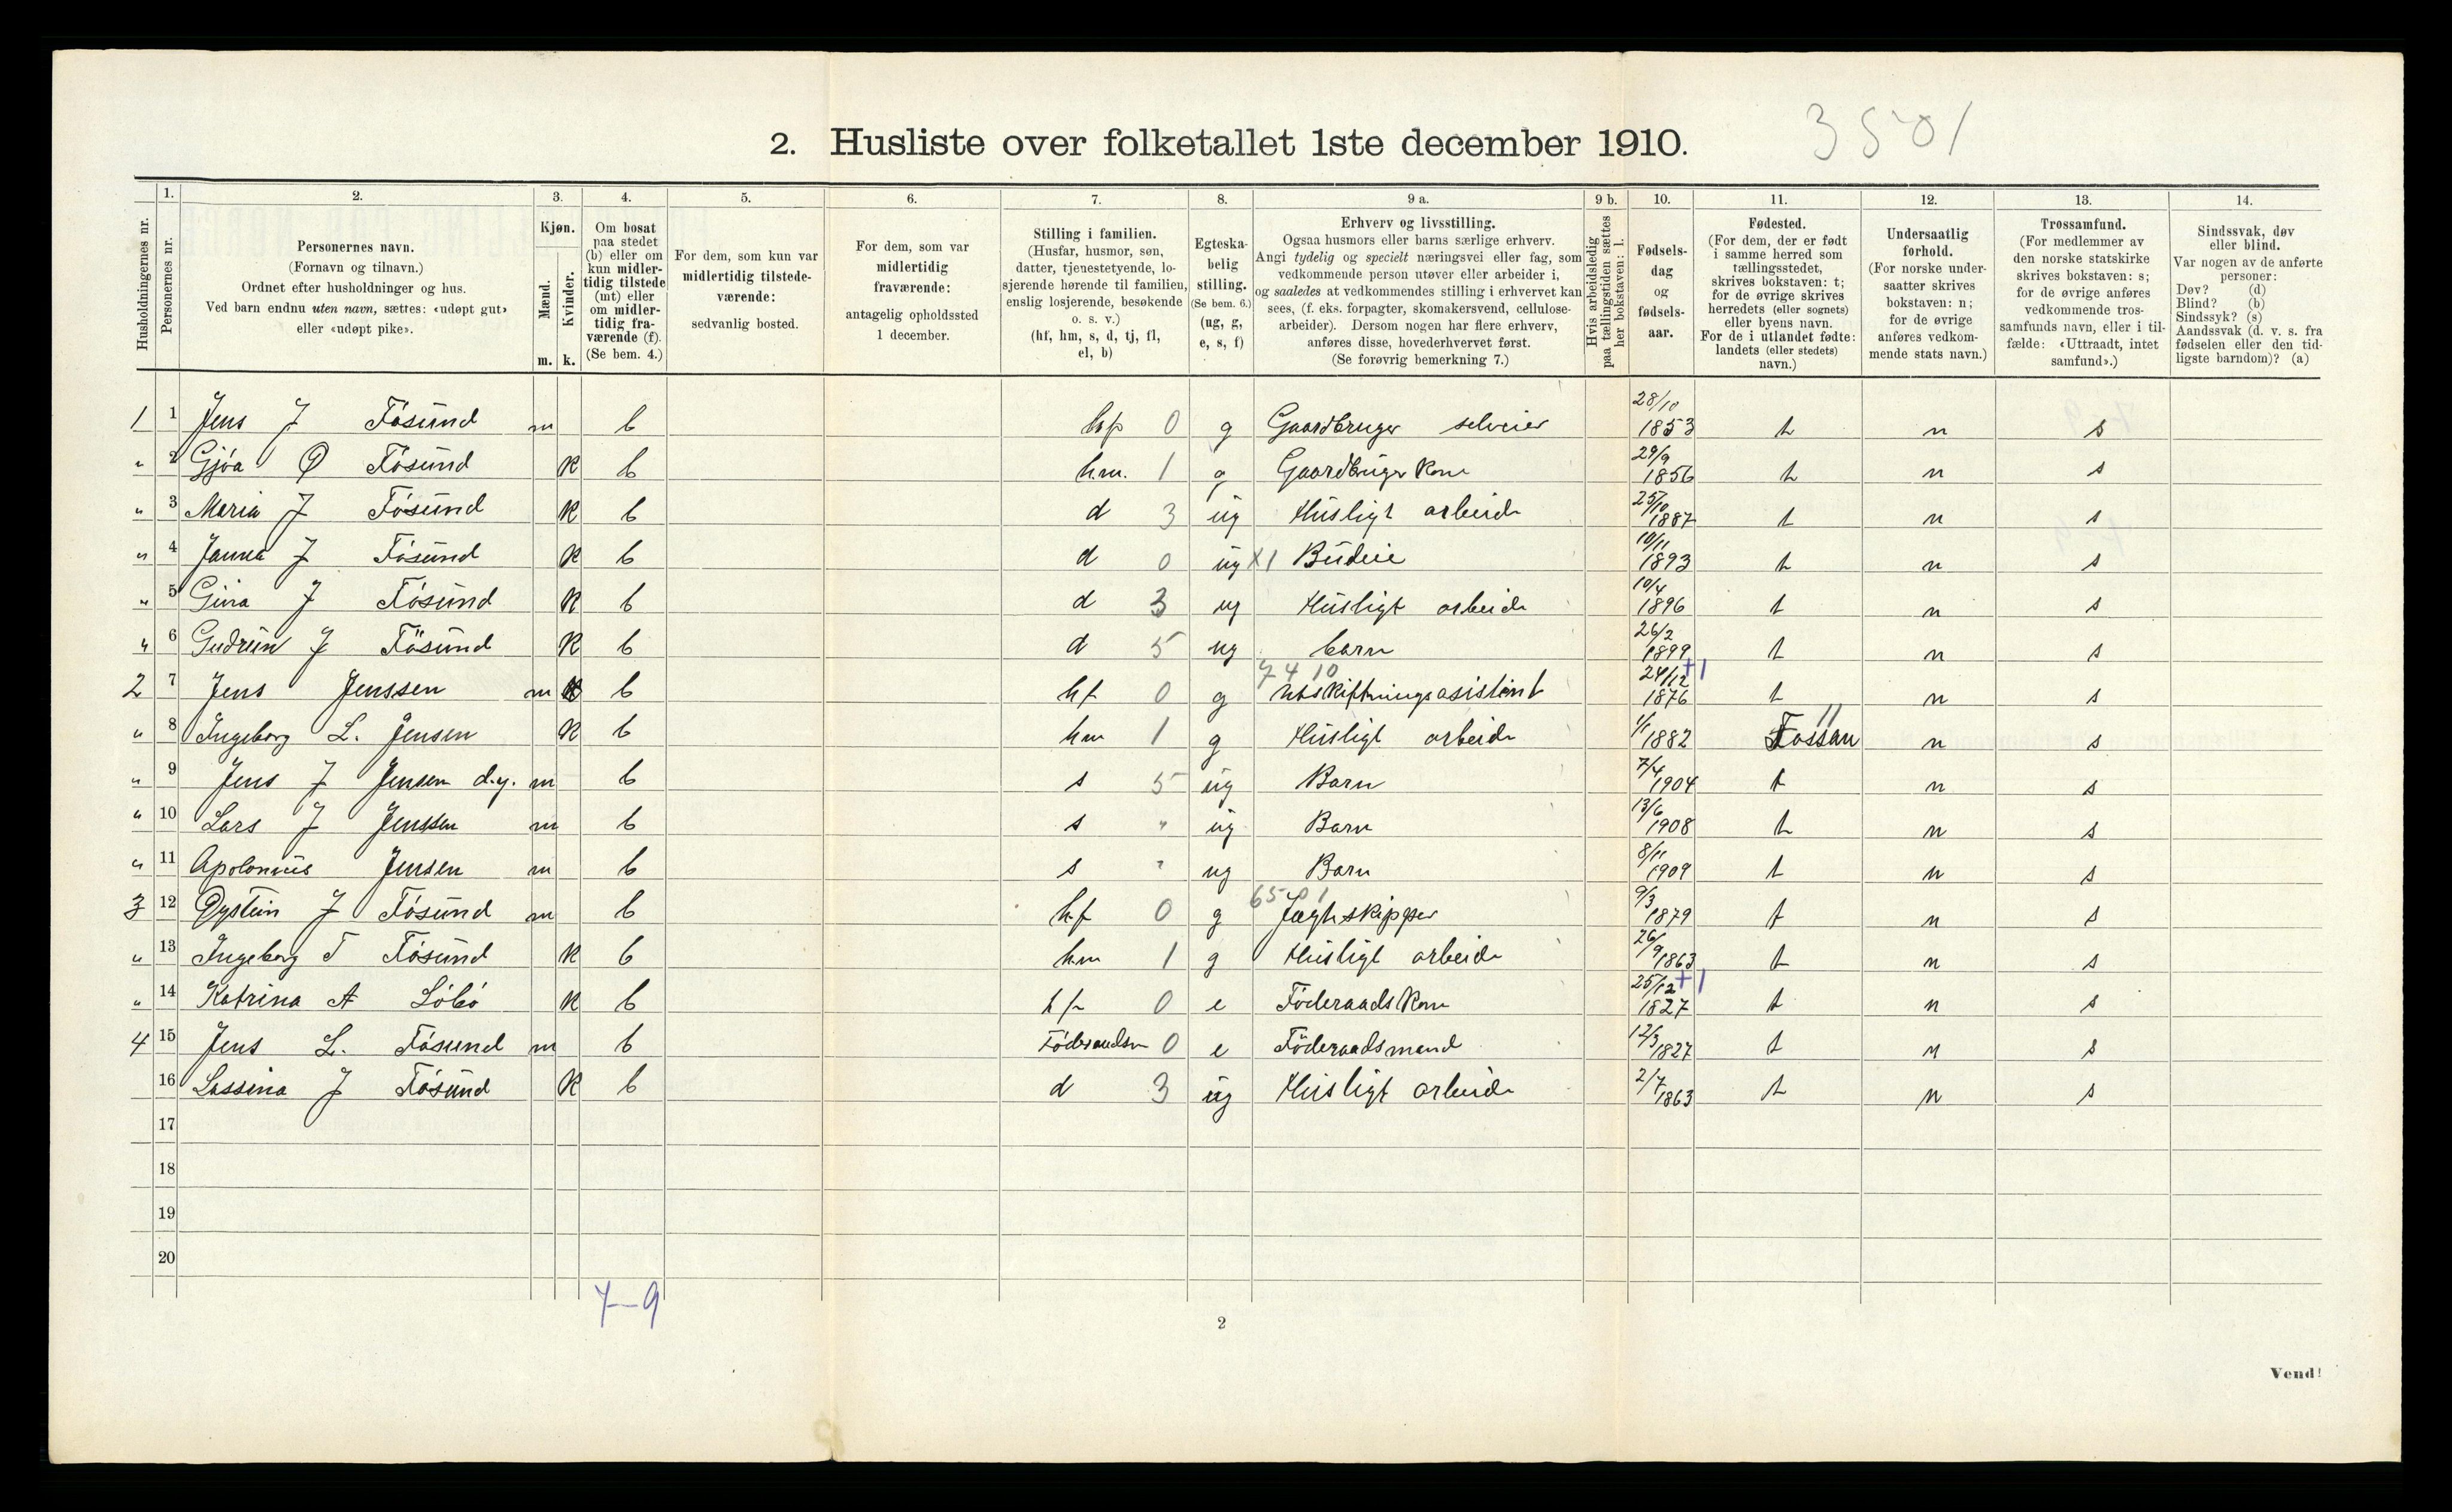 2. Husliste over folketallet 1ste december 1910.
3501
Husholdningernes nr.
1.
Personernes nr.
2.
Personernes navn.
(Fornavn og tilnavn.)
Ordnet efter husholdninger og hus.
Ved barn endnu uten navn, sættes: «udøpt gut»
eller «udøpt pike».
3.
Kjøn.
Mænd.
Kvinder.
m. k.
4.
Om bosat
paa stedet
(b) eller om
kun midler-
tidig tilstede
(mt) eller
om midler-
tidig fra-
værende (f).
(Se bem. 4.)
5.
For dem, som kun var
midlertidig tilstede-
værende:
sedvanlig bosted.
6.
For dem, som var
midlertidig
fraværende:
antagelig opholdssted
1 december.
7.
Stilling i familien.
(Husfar, husmor, søn,
datter, tjenestetyende, lo-
sjerende hørende til familien,
enslig losjerende, besøkende
o. s. v.)
(hf, hm, s, d, tj, fl,
el, b)
8.
Egteska-
belig
stilling.
(Se bem. 6.)
(ug, g,
e, s, f)
9 a.
Erhverv og livsstilling.
Ogsaa husmors eller barns særlige erhverv.
Angi tydelig og specielt næringsvei eller fag, som
vedkommende person utøver eller arbeider i,
og saaledes at vedkommendes stilling i erhvervet kan
sees, (f. eks. forpagter, skomakersvend, cellulose-
arbeider). Dersom nogen har flere erhverv,
anføres disse, hovederhvervet først.
(Se forøvrig bemerkning 7.)
9 b.
Hvis arbeidsledig
paa tællingstiden sættes
her bokstaven: l.
10.
Fødsels-
dag
og
fødsels-
aar.
11.
Fødested.
(For dem, der er født
i samme herred som
tællingsstedet,
skrives bokstaven: t;
for de øvrige skrives
herredets (eller sognets)
eller byens navn.
For de i utlandet fødte:
landets (eller stedets)
navn.)
12.
Undersaatlig
forhold.
(For norske under-
saatter skrives
bokstaven: n;
for de øvrige
anføres vedkom-
mende stats navn.)
13.
Trossamfund.
(For medlemmer av
den norske statskirke
skrives bokstaven: s;
for de øvrige anføres
vedkommende tros-
samfunds navn, eller i til-
fælde: «Uttraadt, intet
samfund».)
14.
Sindssvak, døv
eller blind.
Var nogen av de anførte
personer:
Døv? (d)
Blind? (b)
Sindssyk? (s)
Aandssvak (d. v. s. fra
fødselen eller den tid-
ligste barndom)? (a)
1 1 Jens J Fösund m b hf 0 g Gaardbruger selveier 28/10 1853 t n s
" 2 Gjøa Ø Fösund k b hm. 1 g Gaardbruger kone 29/9 1856 t n s
" 3 Maria J Fösund k b d 3 ug Husligt arbeide 25/10 1887 t n s
" 4 Janna J Fösund k b d 0 ug X1 Budeie 10/11 1893 t n s
" 5 Gina J Fösund k b d 3 ug Husligt arbeide 10/4 1896 t n s
" 6 Gudrun J Fösund k b d 5 ug barn 26/2 1899 t n s
2 7 Jens Jenssen m b hf 0 g 7410 Utskiftningsasistent 24/12 +1 1876 t n s
" 8 Ingeborg L. Jensen k b hm 1 g Husligt arbeide 1/1 1882 Fossan 11 n s
" 9 Jens J Jensen d.y. m b s 5 ug Barn 7/4 1904 t n s
" 10 Lars J Jenssen m b s " ug Barn 13/6 1908 t n s
" 11 Apolonius Jensen m b s " ug Barn 8/11 1909 t n s
3 12 Øystein J Fösund m b hf 0 g 6501 Jægtskipper 9/3 1879 t n s
" 13 Ingeborg T Fösund k b hm 1 g Husligt arbeide 26/9 1863 t n s
" 14 Katrina A Löbö k b hf 0 e Föderaadskone 25/12 +1 1827 t n s
4 15 Jens L. Fösund m b Föderaadsm 0 e Föderaadsmand 12/3 1827 t n s
16 Lassina J Fösund k b d 3 ug Husligt arbeide 2/7 1863 t n s
17
18
19
20
7-9
2
Vend!